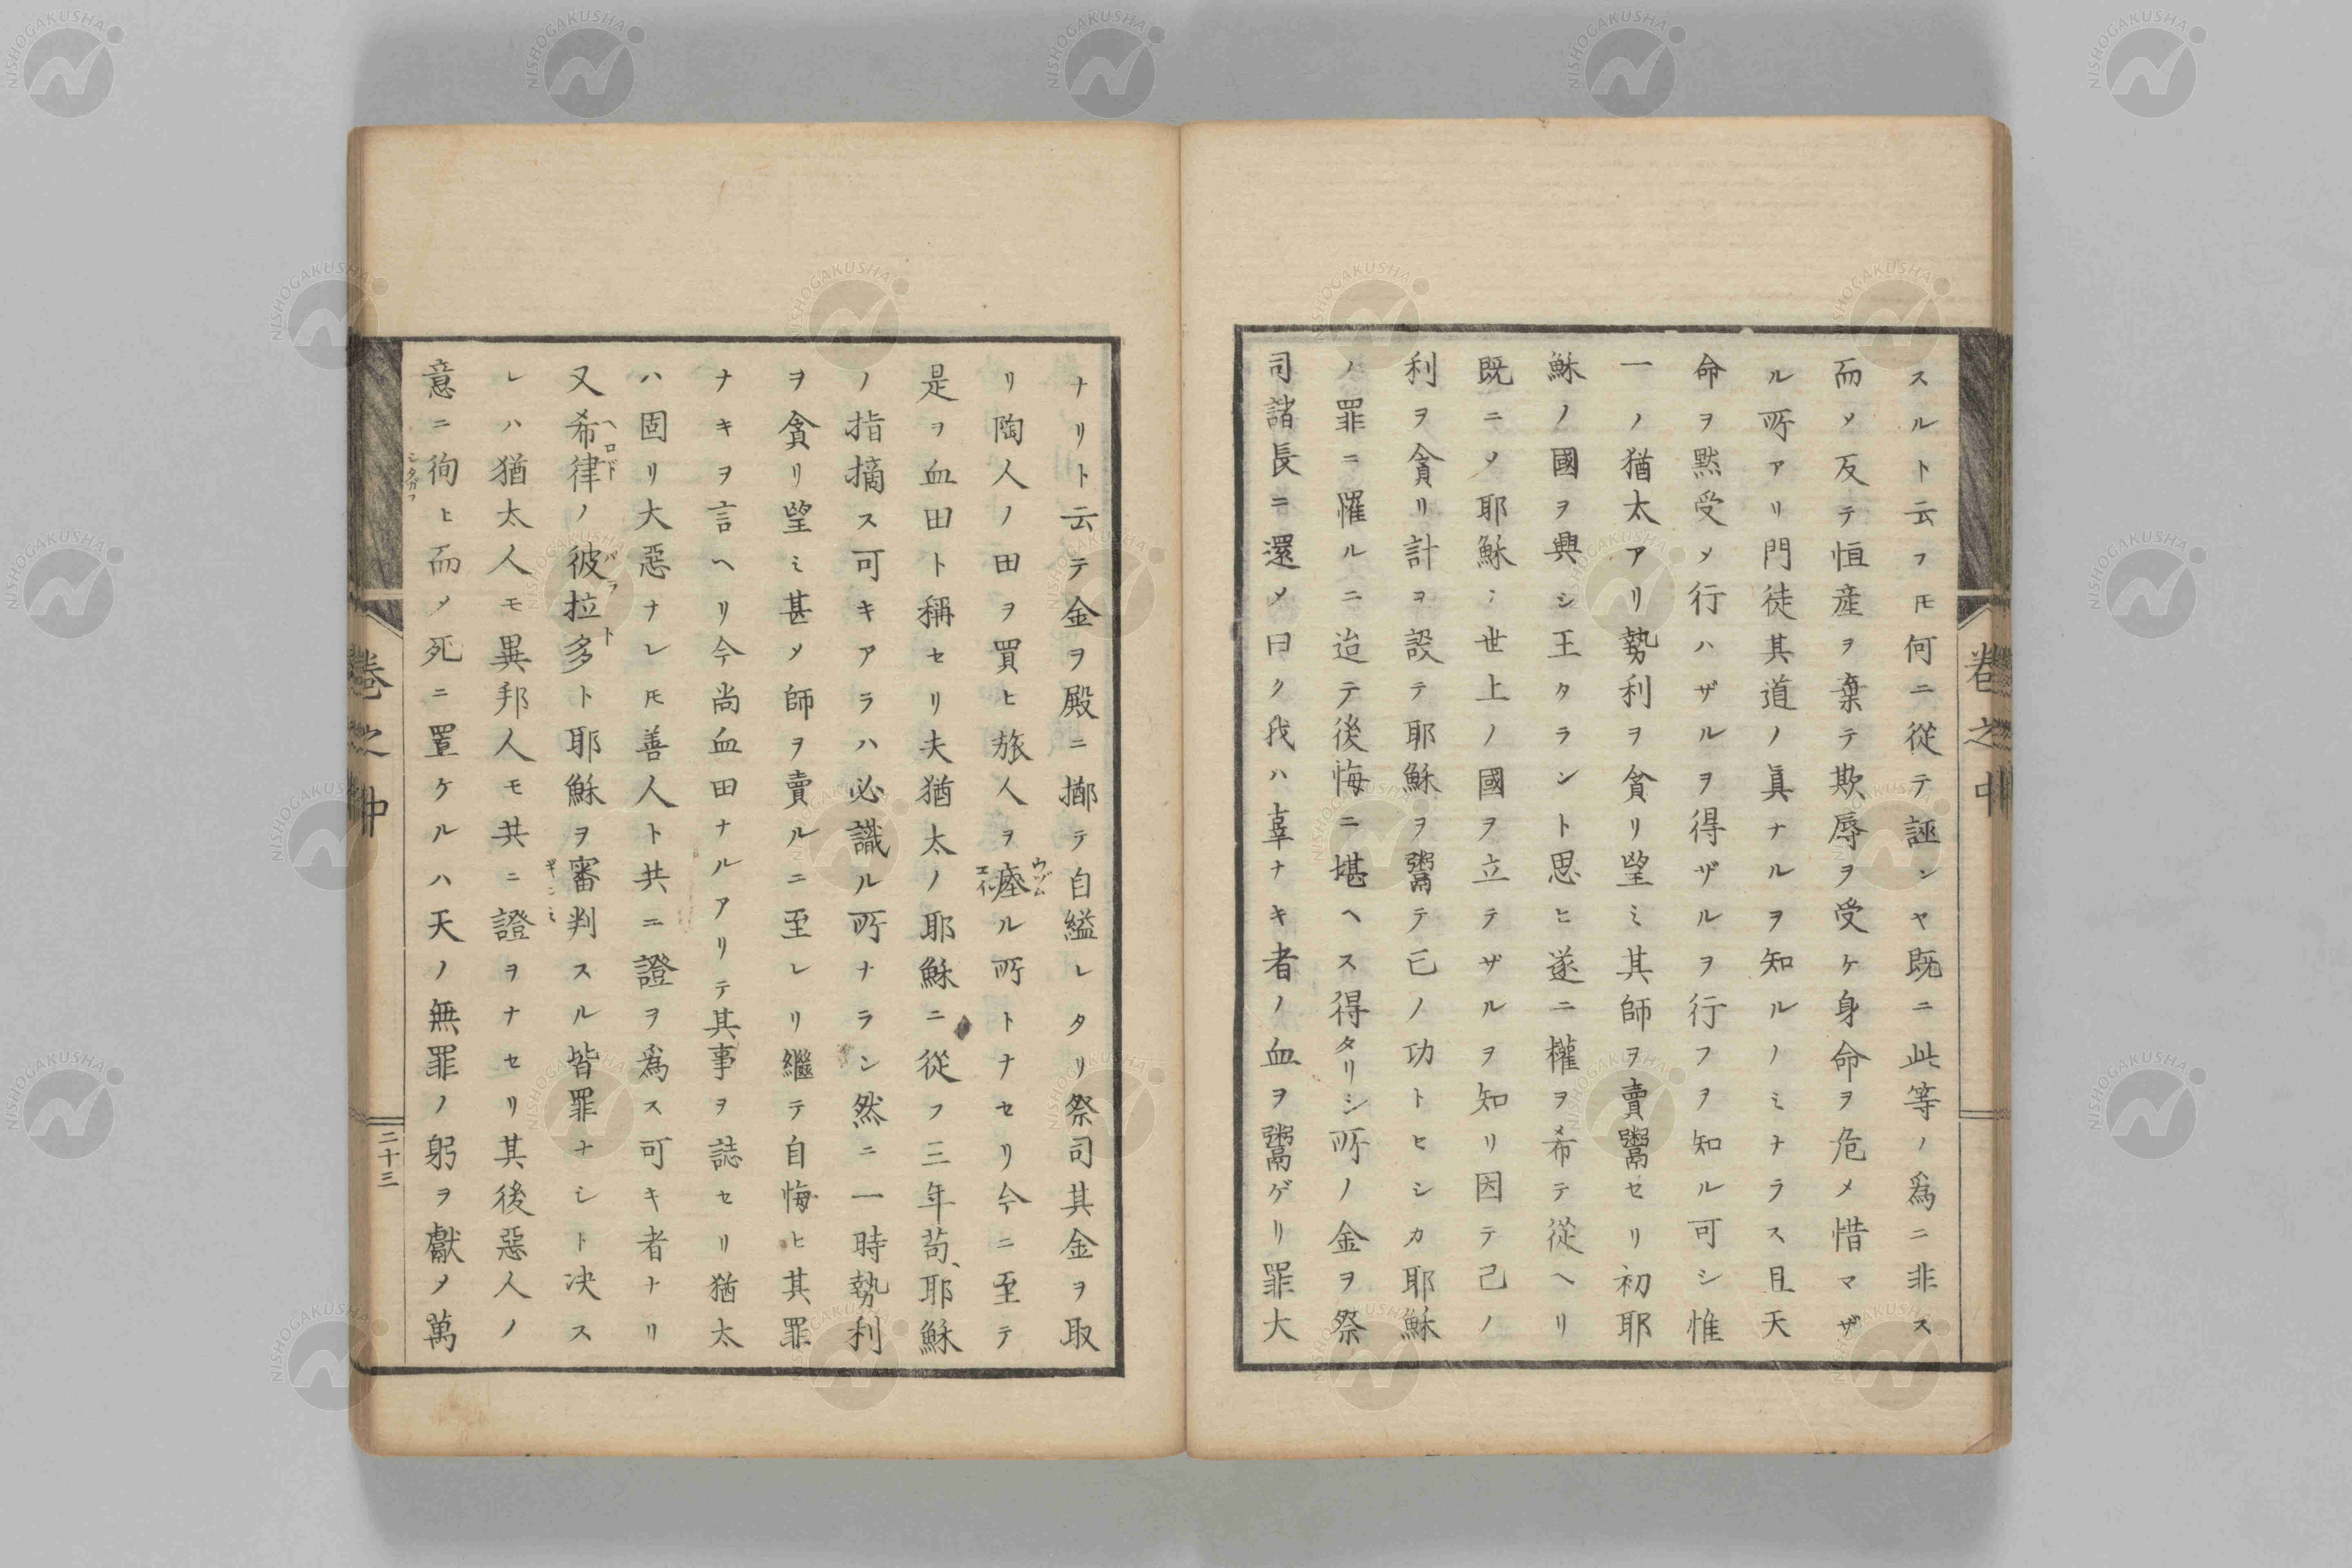 スルト云フ𪜈何ニ從テ誣ンヤ既ニ此等ノ爲ニ非ス
而〆反テ恒産ヲ棄テ欺辱ヲ受ケ身命ヲ危メ惜マザ
ル所アリ門徒其道ノ眞ナルヲ知ルノミナラス且天
命ヲ默受〆行ハザルヲ得ザルヲ行フヲ知ル可シ惟
一ノ猶太アリ勢利ヲ貪リ望ミ其師ヲ賣鬻セリ初耶
穌ノ國ヲ興シ王タラント思ヒ遂ニ權ヲ希テ從ヘリ
既ニ〆耶穌ハ世上ノ國ヲ立テザルヲ知リ因テ己ノ
利ヲ貪リ計ヲ設テ耶穌ヲ鬻テ己ノ功トヒシカ耶穌
ノ罪ニ罹ルニ迨テ後悔ニ堪ヘス得タリシ所ノ金ヲ祭
司諸長ニ還〆曰ク我ハ辜ナキ者ノ血ヲ鬻ゲリ罪大
卷之中
ナリト云テ金ヲ殿ニ擲テ自縊レタリ祭司其金ヲ取
リ陶人ノ田ヲ買ヒ旅人ヲ瘞ル所トナセリ今ニ至テ
ウヅム
エイ
是ヲ血田ト稱セリ夫猶太ノ耶穌ニ從フ三年苟耶穌
ノ指摘ス可キアラハ必識ル所ナラン然ニ一時勢利
ヲ貪リ望ミ甚〆師ヲ賣ルニ至レリ繼テ自悔ヒ其罪
ナキヲ言ヘリ今尚血田ナルアリテ其事ヲ誌セリ猶太
ハ固リ大惡ナレ𪜈善人ト共ニ證ヲ爲ス可キ者ナリ
又希律ノ彼拉多ト耶穌ヲ審判スル皆罪ナシト决ス
ヘロド
パラト
ギンミ
レハ猶太人モ異邦人モ共ニ證ヲナセリ其後惡人ノ
意ニ徇ヒ而〆死ニ置ケルハ天ノ無罪ノ躬ヲ獻〆萬
シタガフ
卷之中
二十三
NISHOGAKUSHA